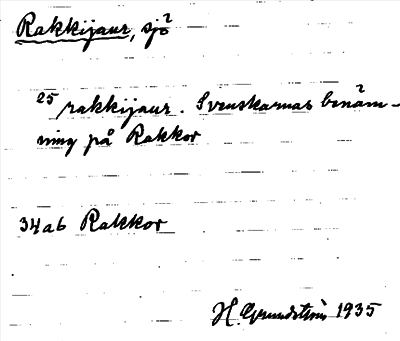 Rakkijaur, sjö
25/rakkijaur. Svenskarnas benäm-
ning på Rakkor
34a6 Rakkor
H. Grundström 1935